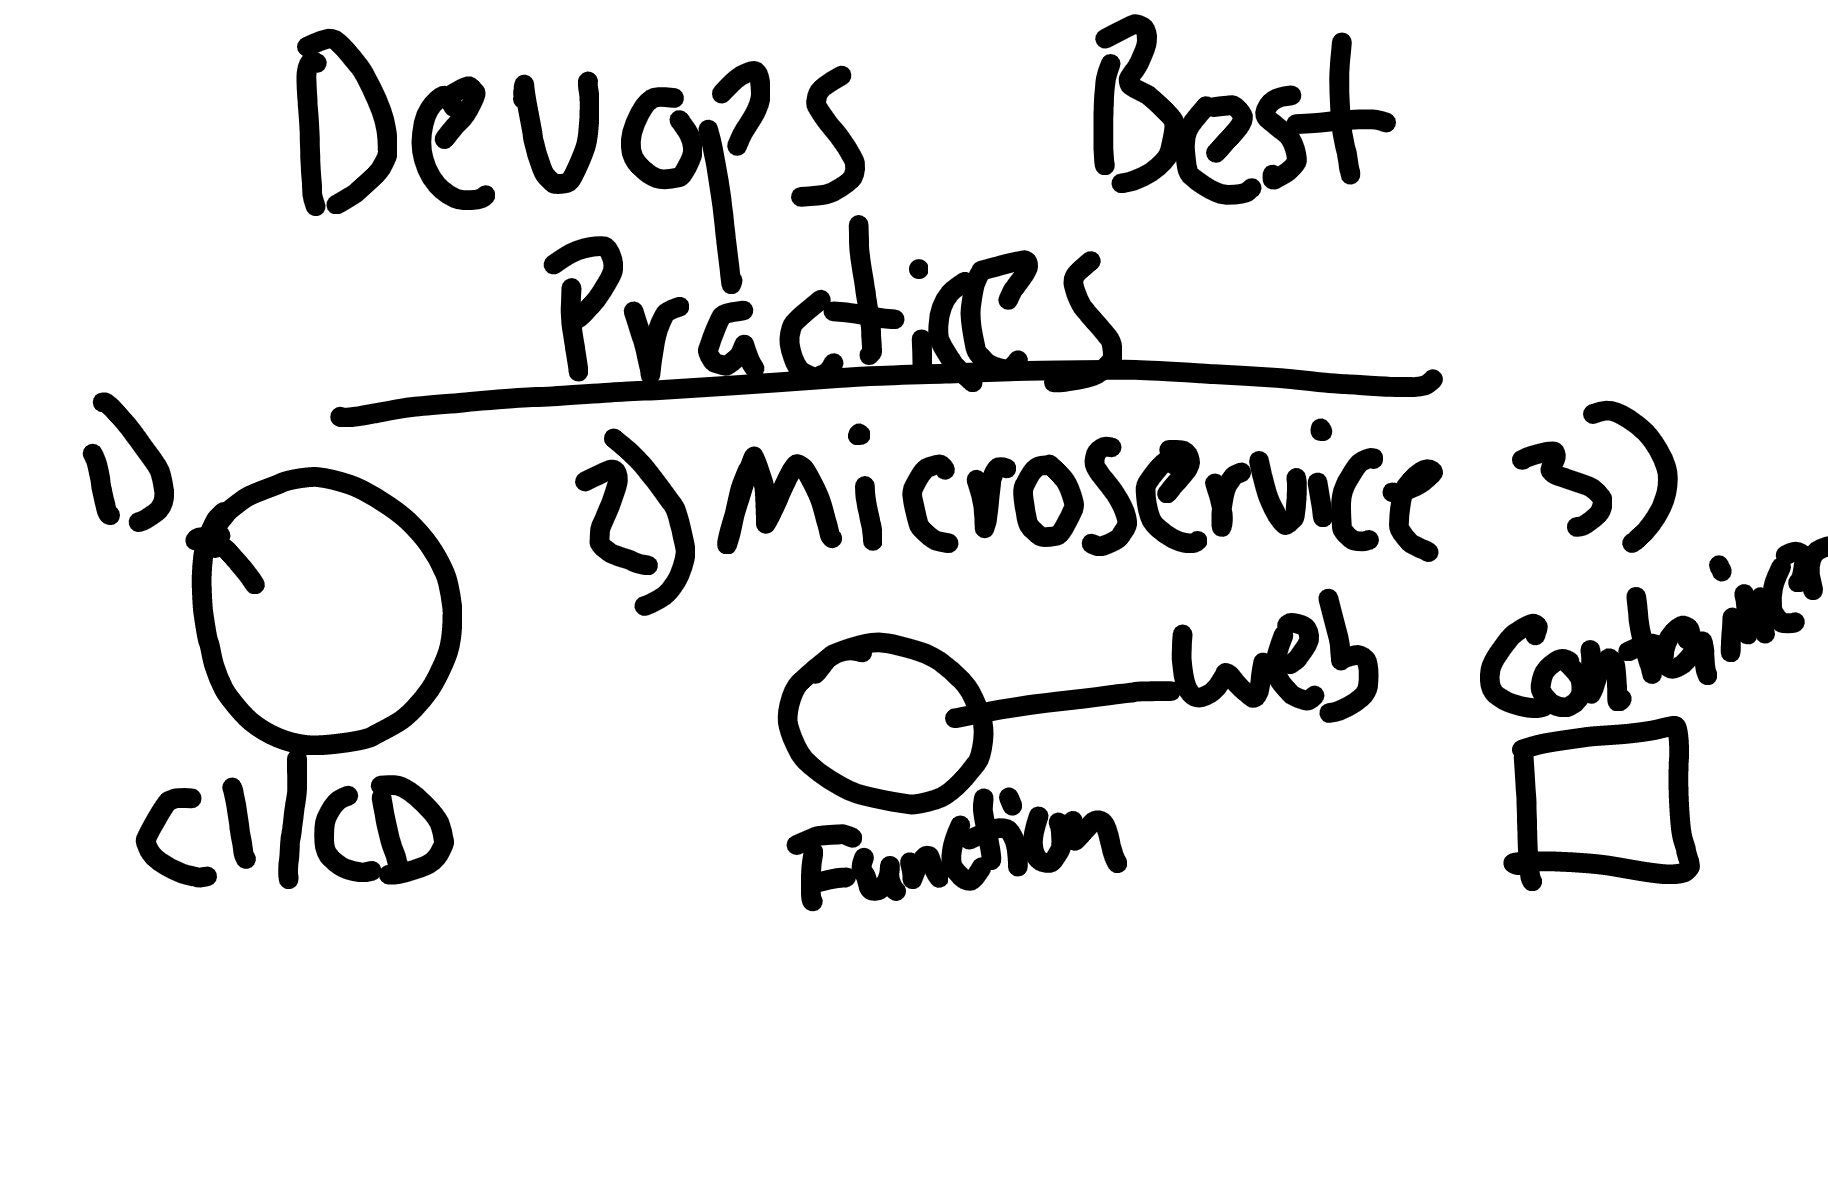 Devops Best
Practices
1)
CI/CD
2) Microservice
web
Function
3)
Container